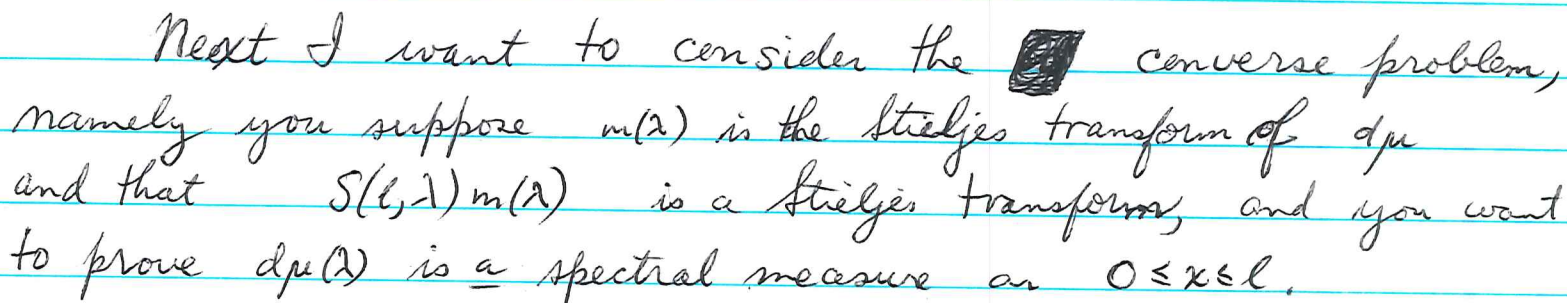 Next I want to consider the converse problem,
namely you suppose m(λ) is the Stieljes transform of dμ
and that S(l,λ)m(λ) is a Stieljes transform, and you want
to prove dμ(λ) is a spectral measure on 0≤x≤l.